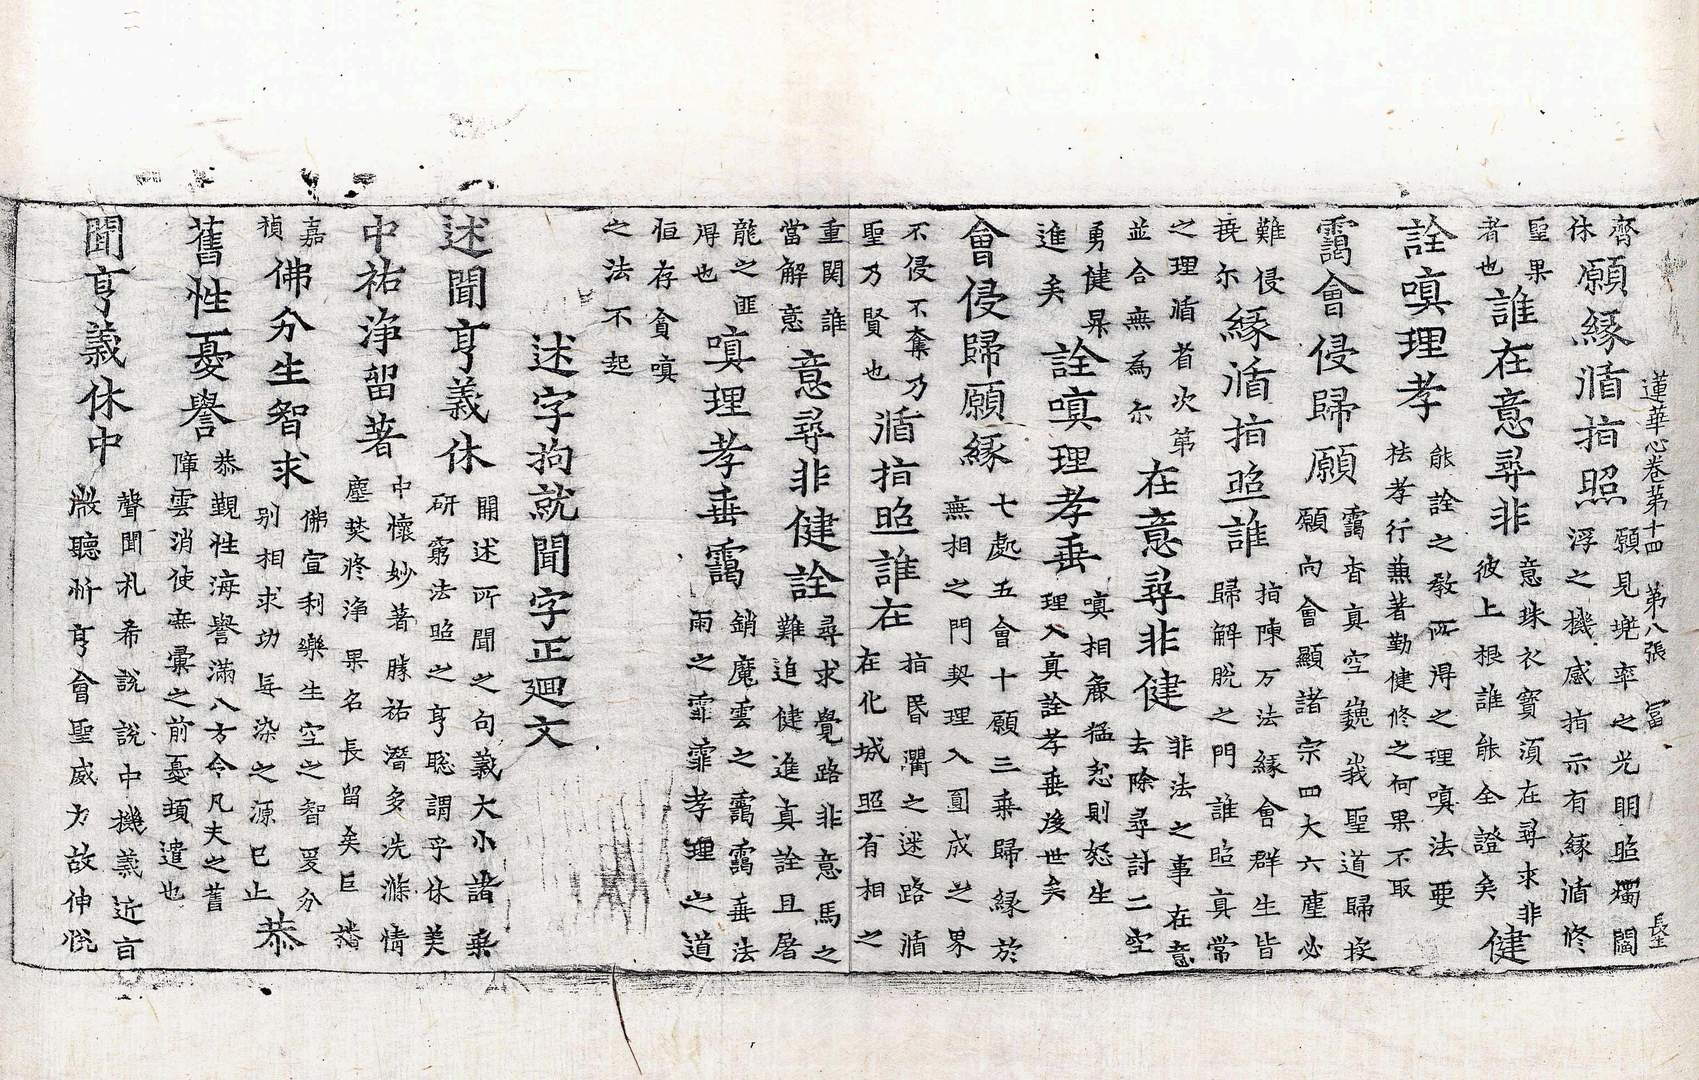 蓮華心卷第十四　第八張　富　長生
齊休願緣循指照願見兜率之光明照燭閻浮之機感指示有緣循修
聖果者也誰在意尋非意珠衣寶須在尋求非彼上根誰能全證矣健
詮嗔理孝能詮之教所得之理嗔法要祛孝行兼著勤健修之何果不取
靄會侵歸願靄杳真空巍峩聖道歸投願向會顯諸宗四大六塵必
難侵撓尔緣循指照誰指陳万法緣會群生皆歸解脫之門誰照真常
之理循省次第並合無為尔在意尋非健非法之事在意去除尋討二空
勇健杲進矣詮嗔理孝垂嗔相麁猛恚則怒生理入真詮孝垂後世矣
會侵歸願緣七處五會十願三乘歸緣於無相之門契理入圓成之界
不侵不奪乃聖乃賢也循指照誰在指昏衢之迷路循在化城照有相之
重関誰當解意意尋非健詮尋求覺路非意馬之難追健進真詮且屠
龍之匪得也嗔理孝垂靄銷魔雲之靄靄垂法雨之霏霏孝理之道
恒存貪嗔之法不起
述字拘就聞字正廻文
述聞亨義休開述所聞之句義大小諸乘研窮法照之亨聡謂乎休美
中祐淨留著中懷妙著勝祐潛多洗滌情塵焚終淨果名長留矣巨播
嘉禎佛分生智求佛宣利樂生空之智爰分別相求功毎染之源已止恭
舊性憂譽恭覲性海譽滿八方令凡夫之舊障雲消使無彙之前憂頓遣也
聞亨義休中聲聞札希說說中機義近盲微聽所亨會聖威力故伸悅